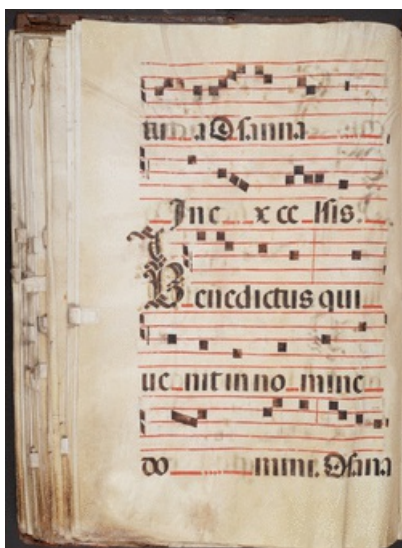 tu a a Osanna
In e x ce lsis.
Benedictus qui
ue nit in no mine
do mini. Osana